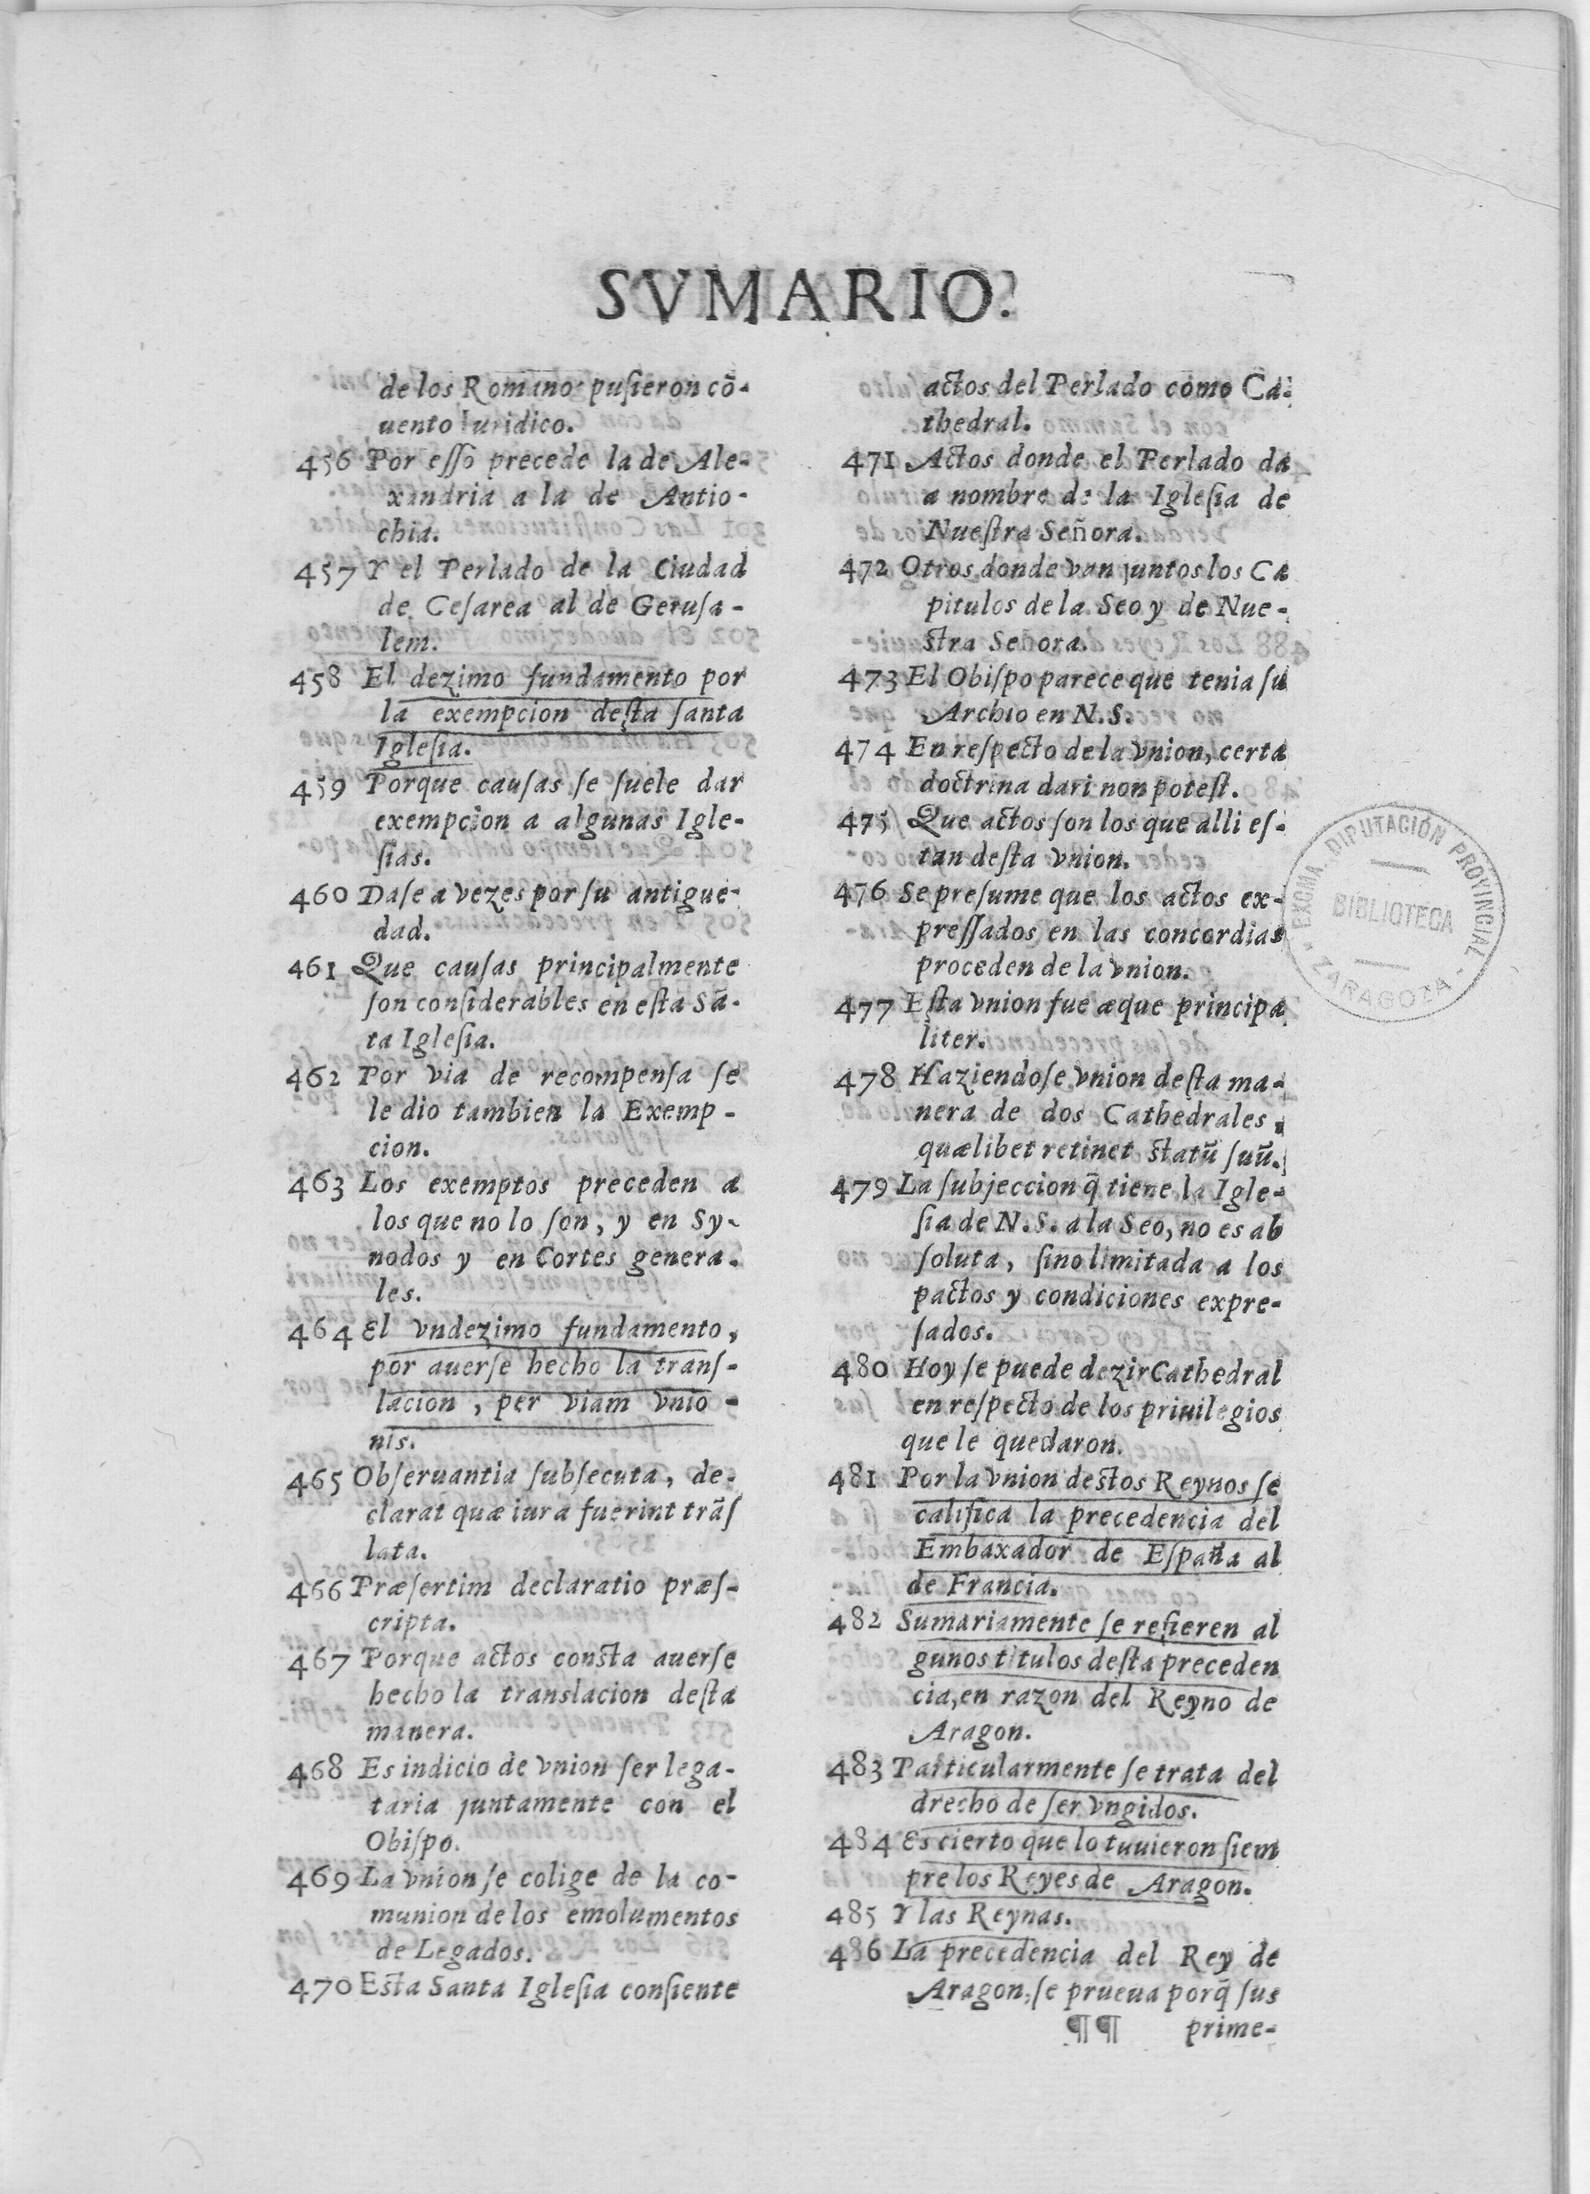 SVMARIO.
de los Romanos pusieron cō-
uento Iuridico.
456 Por eſſo precede la de Ale-
xandria a la de Antio-
chia.
457 Y el Perlado de la Ciudad
de Ceſarea al de Geruſa-
lem.
458 El dezimo fundamento por
la exempcion deſta ſanta
Igleſia.
459 Porque cauſas ſe ſuele dar
exempcion a algunas Igle-
ſias.
460 Daſe a vezes por ſu antigue-
dad.
461 Que cauſas principalmente
ſon conſiderables en eſta Sā-
ta Igleſia.
462 Por via de recompenſa ſe
le dio tambien la Exemp-
cion.
463 Los exemptos preceden a
los que no lo ſon, y en Sy-
nodos y en Cortes genera-
les.
464 El vndezimo fundamento,
por auerſe hecho la tranſ-
lacion, per viam vnio-
nis.
465 Obſeruantia ſubſecuta, de-
clarat quæ iura fuerint trāſ
lata.
466 Præſertim declaratio præſ-
cripta.
467 Porque actos conſta auerſe
hecho la translacion deſta
manera.
468 Es indicio de vnion ſer lega-
taria juntamente con el
Obiſpo.
469 La vnion ſe colige de la co-
munion de los emolumentos
de Legados.
470 Eſta Santa Igleſia conſiente
actos del Perlado como Ca-
thedral.
471 Actos donde el Perlado da
a nombre de la Igleſia de
Nueſtra Señora.
472 Otros donde van juntos los Ca
pitulos de la Seo y de Nue-
ſtra Señora.
473 El Obiſpo parece que tenia ſu
Archio en N.S.
474 En reſpecto de la vnion, certa
doctrina dari non poteſt.
475 Que actos ſon los que alli eſ-
tan deſta vnion.
476 Se preſume que los actos ex-
preſſados en las concordias
proceden de la vnion.
477 Eſta vnion fue æque principa
liter.
478 Haziendoſe vnion deſta ma-
nera de dos Cathedrales,
quælibet retinet ſtatū ſuū.
479 La ſubjeccion q̄ tiene la Igle-
ſia de N.S. a la Seo, no es ab
ſoluta, ſino limitada a los
pactos y condiciones expre-
ſados.
480 Hoy ſe puede dezir Cathedral
en reſpecto de los priuilegios
que le quedaron.
481 Por la vnion deſtos Reynos ſe
califica la precedencia del
Embaxador de Eſpaña al
de Francia.
482 Sumariamente ſe refieren al
gunos titulos deſta preceden
cia, en razon del Reyno de
Aragon.
483 Particularmente ſe trata del
drecho de ſer vngidos.
484 Es cierto que lo tuuieron ſiem
pre los Reyes de Aragon.
485 Y las Reynas.
486 La precedencia del Rey de
Aragon, ſe prueua porq̄ ſus
¶¶ prime-
EXCMA. DIPUTACIÓN PROVINCIAL
BIBLIOTECA
ZARAGOZA